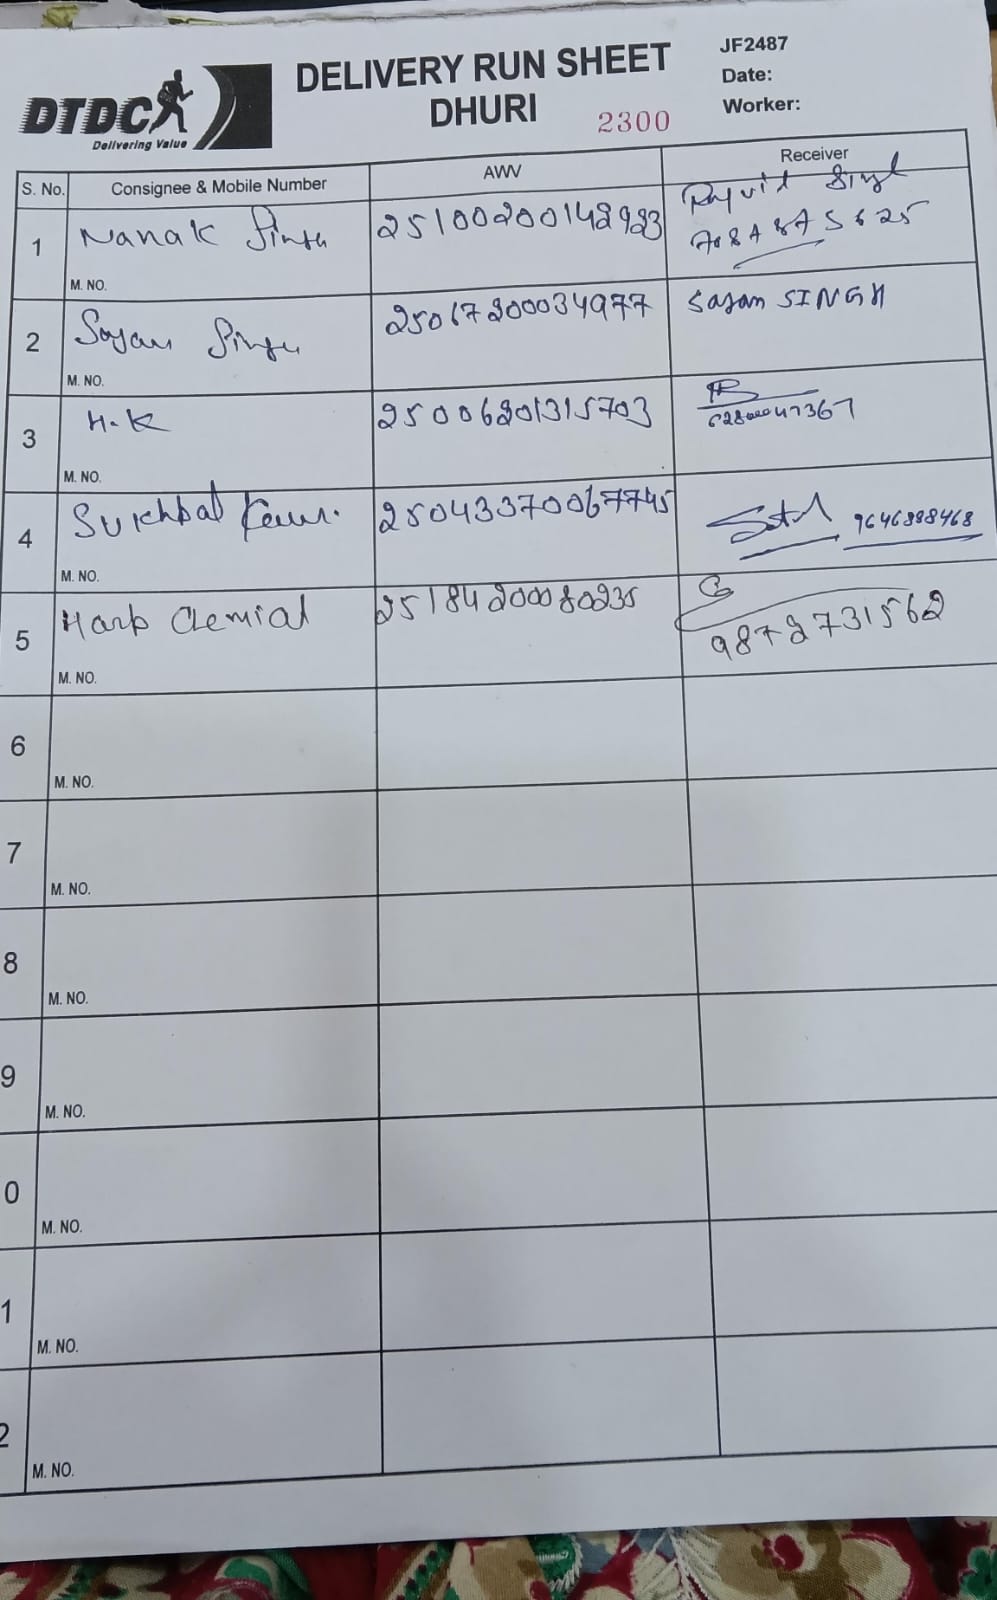 DTDC
Delivering Value
DELIVERY RUN SHEET
DHURI
2300
JF2487
Date:
Worker:
S. No. Consignee & Mobile Number AWV Receiver
1 Nanak Singh 25100200142923 Singh
M. NO.
2 Sajan Singh 25067200034977 Sajan SINGH
M. NO.
3 H.K 25006201315703
M. NO.
4 Sukhbal Kaur. 25043370067745 9646898468
M. NO.
5 25184200080235 9872731562
M. NO.
6
M. NO.
7
M. NO.
8
M. NO.
9
M. NO.
0
M. NO.
1
M. NO.
2
M. NO.